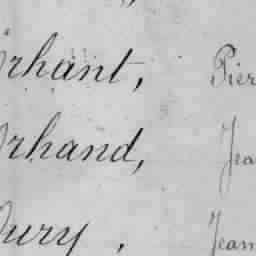 rhant, Pier
rhand, Jea
ury, Jean